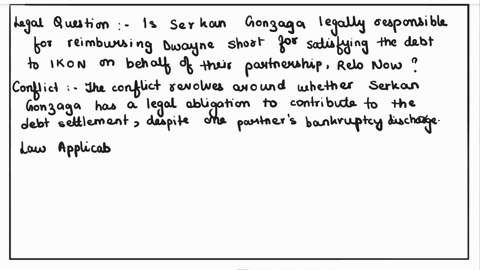 Legal Question :- Is Serkan Gonzaga legally responsible
for reimbursing Dwayne Short for satisfying the debt
to IKON on behalf of their partnership, Relo Now ?
Conflict :- The conflict revolves around whether Serkan
Gonzaga has a legal obligation to contribute to the
debt settlement, despite one partner's bankruptcy discharge.
Law Applicab